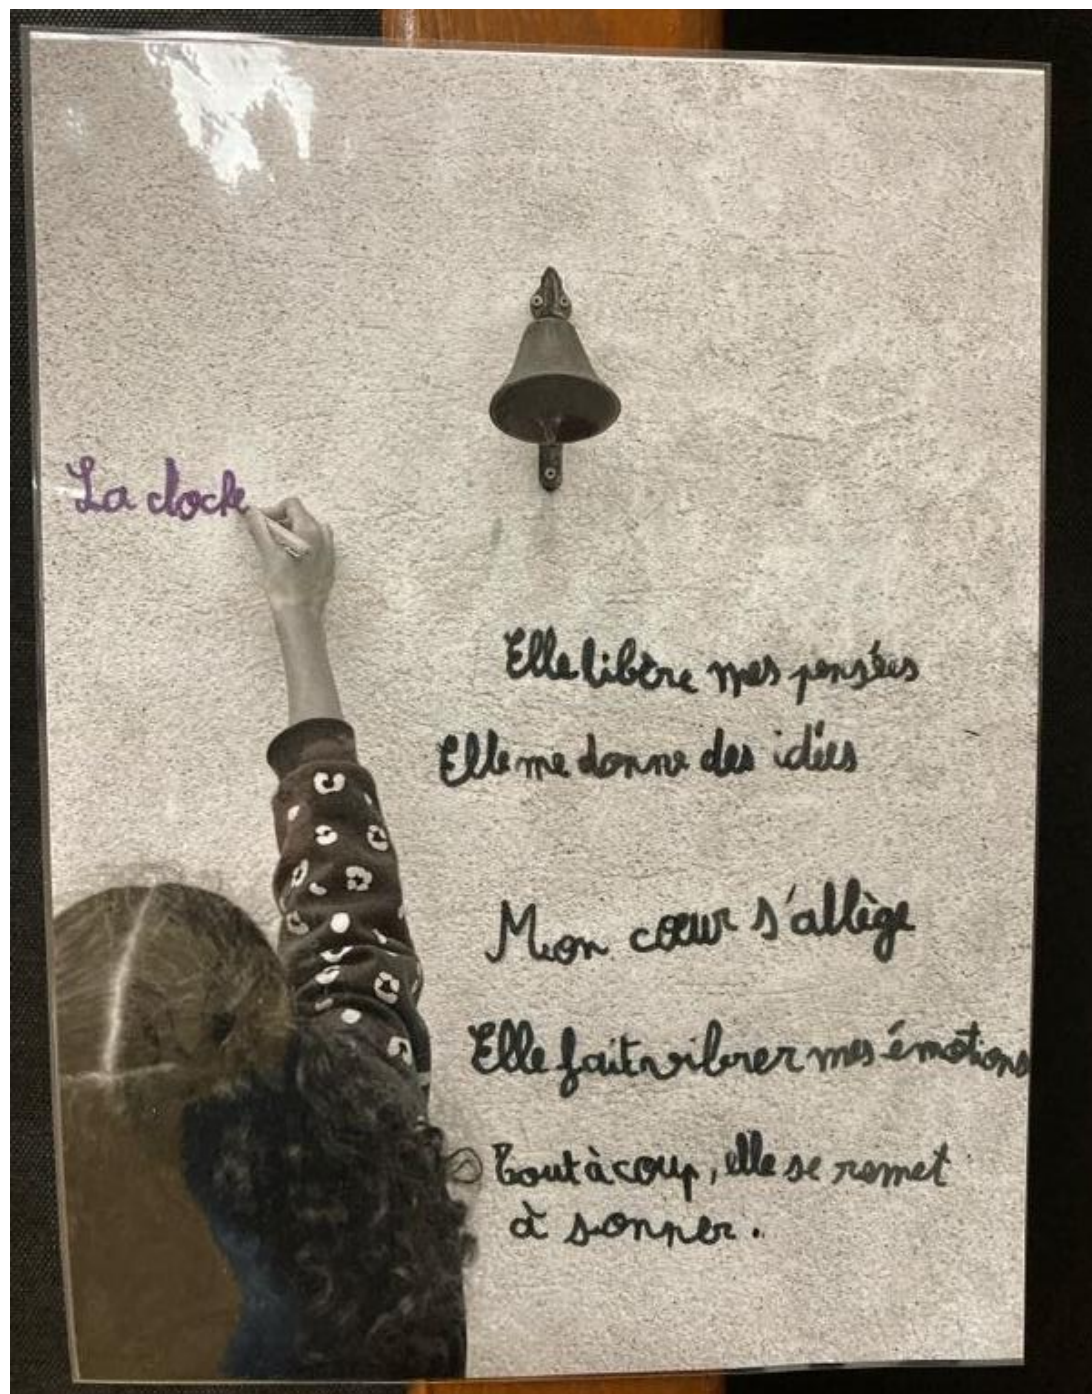 La cloche
Elle libère mes pensées
Elle me donne des idées
Mon cœur s'allège
Elle fait vibrer mes émotions
Tout à coup, elle se remet
à sonner.